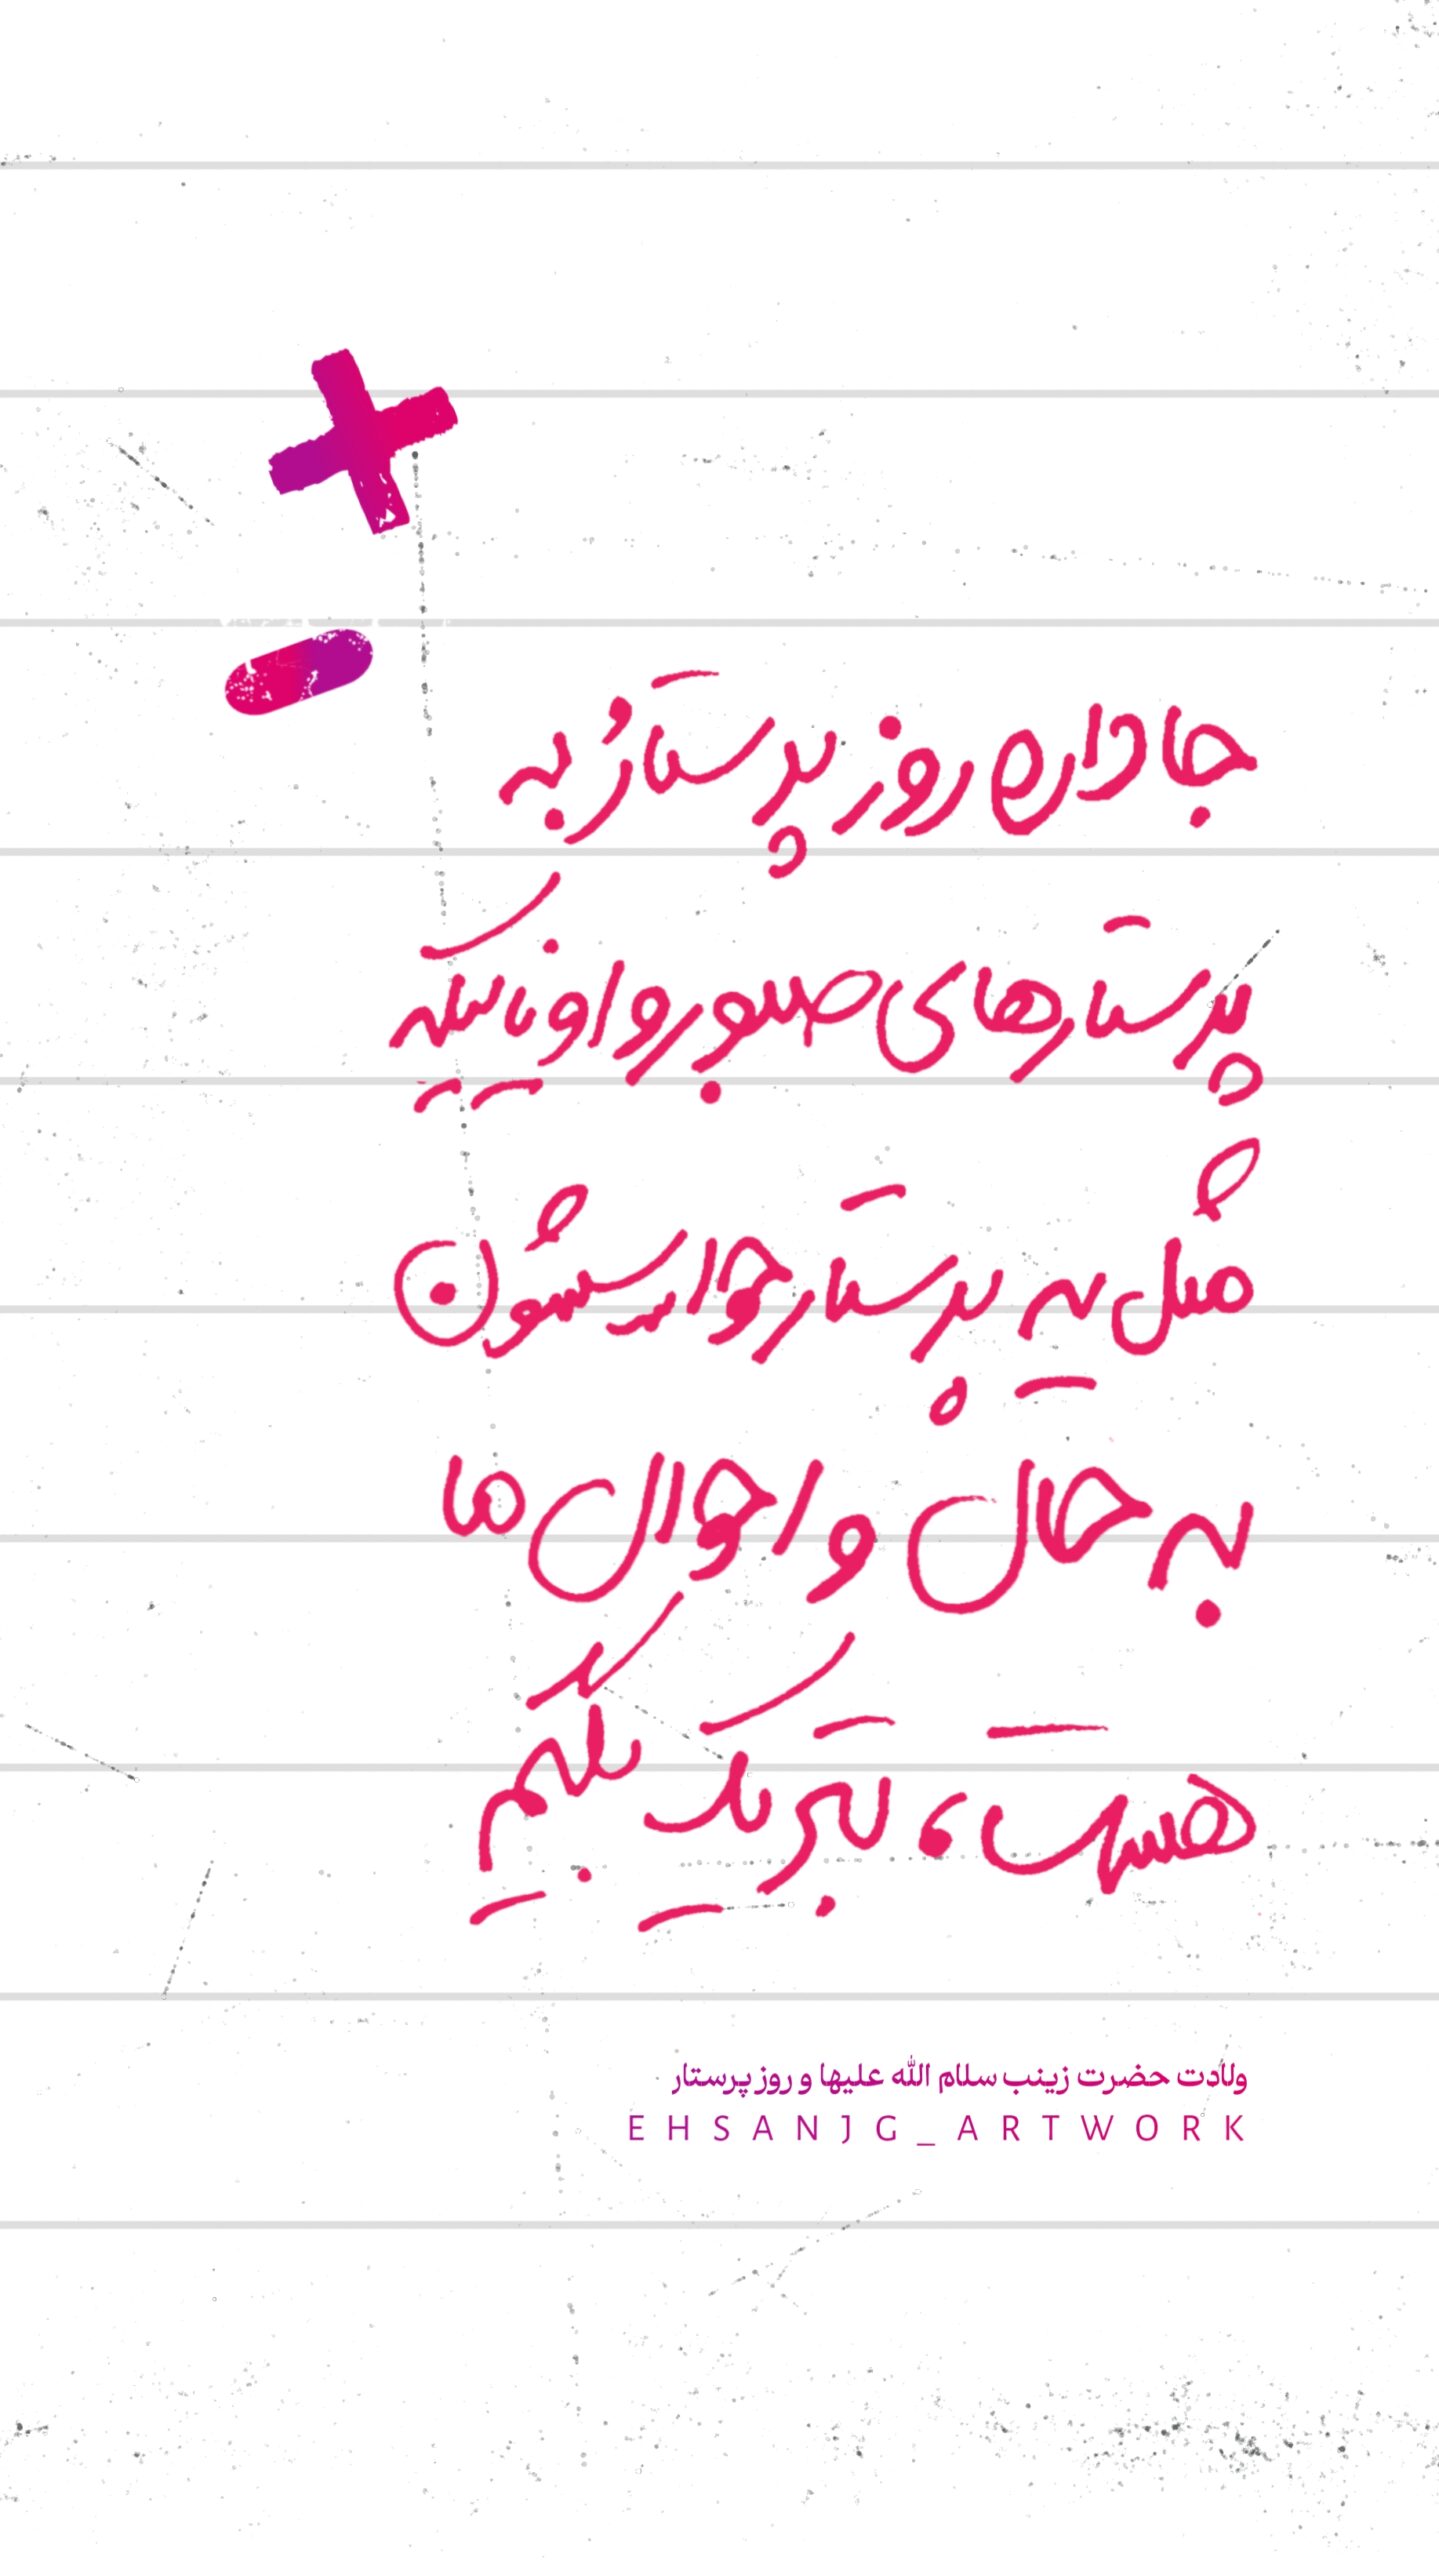 جا داره روز پرستارُ به
پرستارهای صبور و اونایی‌که
مثل یه پرستار حواسشون
به حال و احوال ما
هست، تبریک بگیم
ولادت حضرت زینب سلام الله علیها و روز پرستار
EHSANJG_ARTWORK